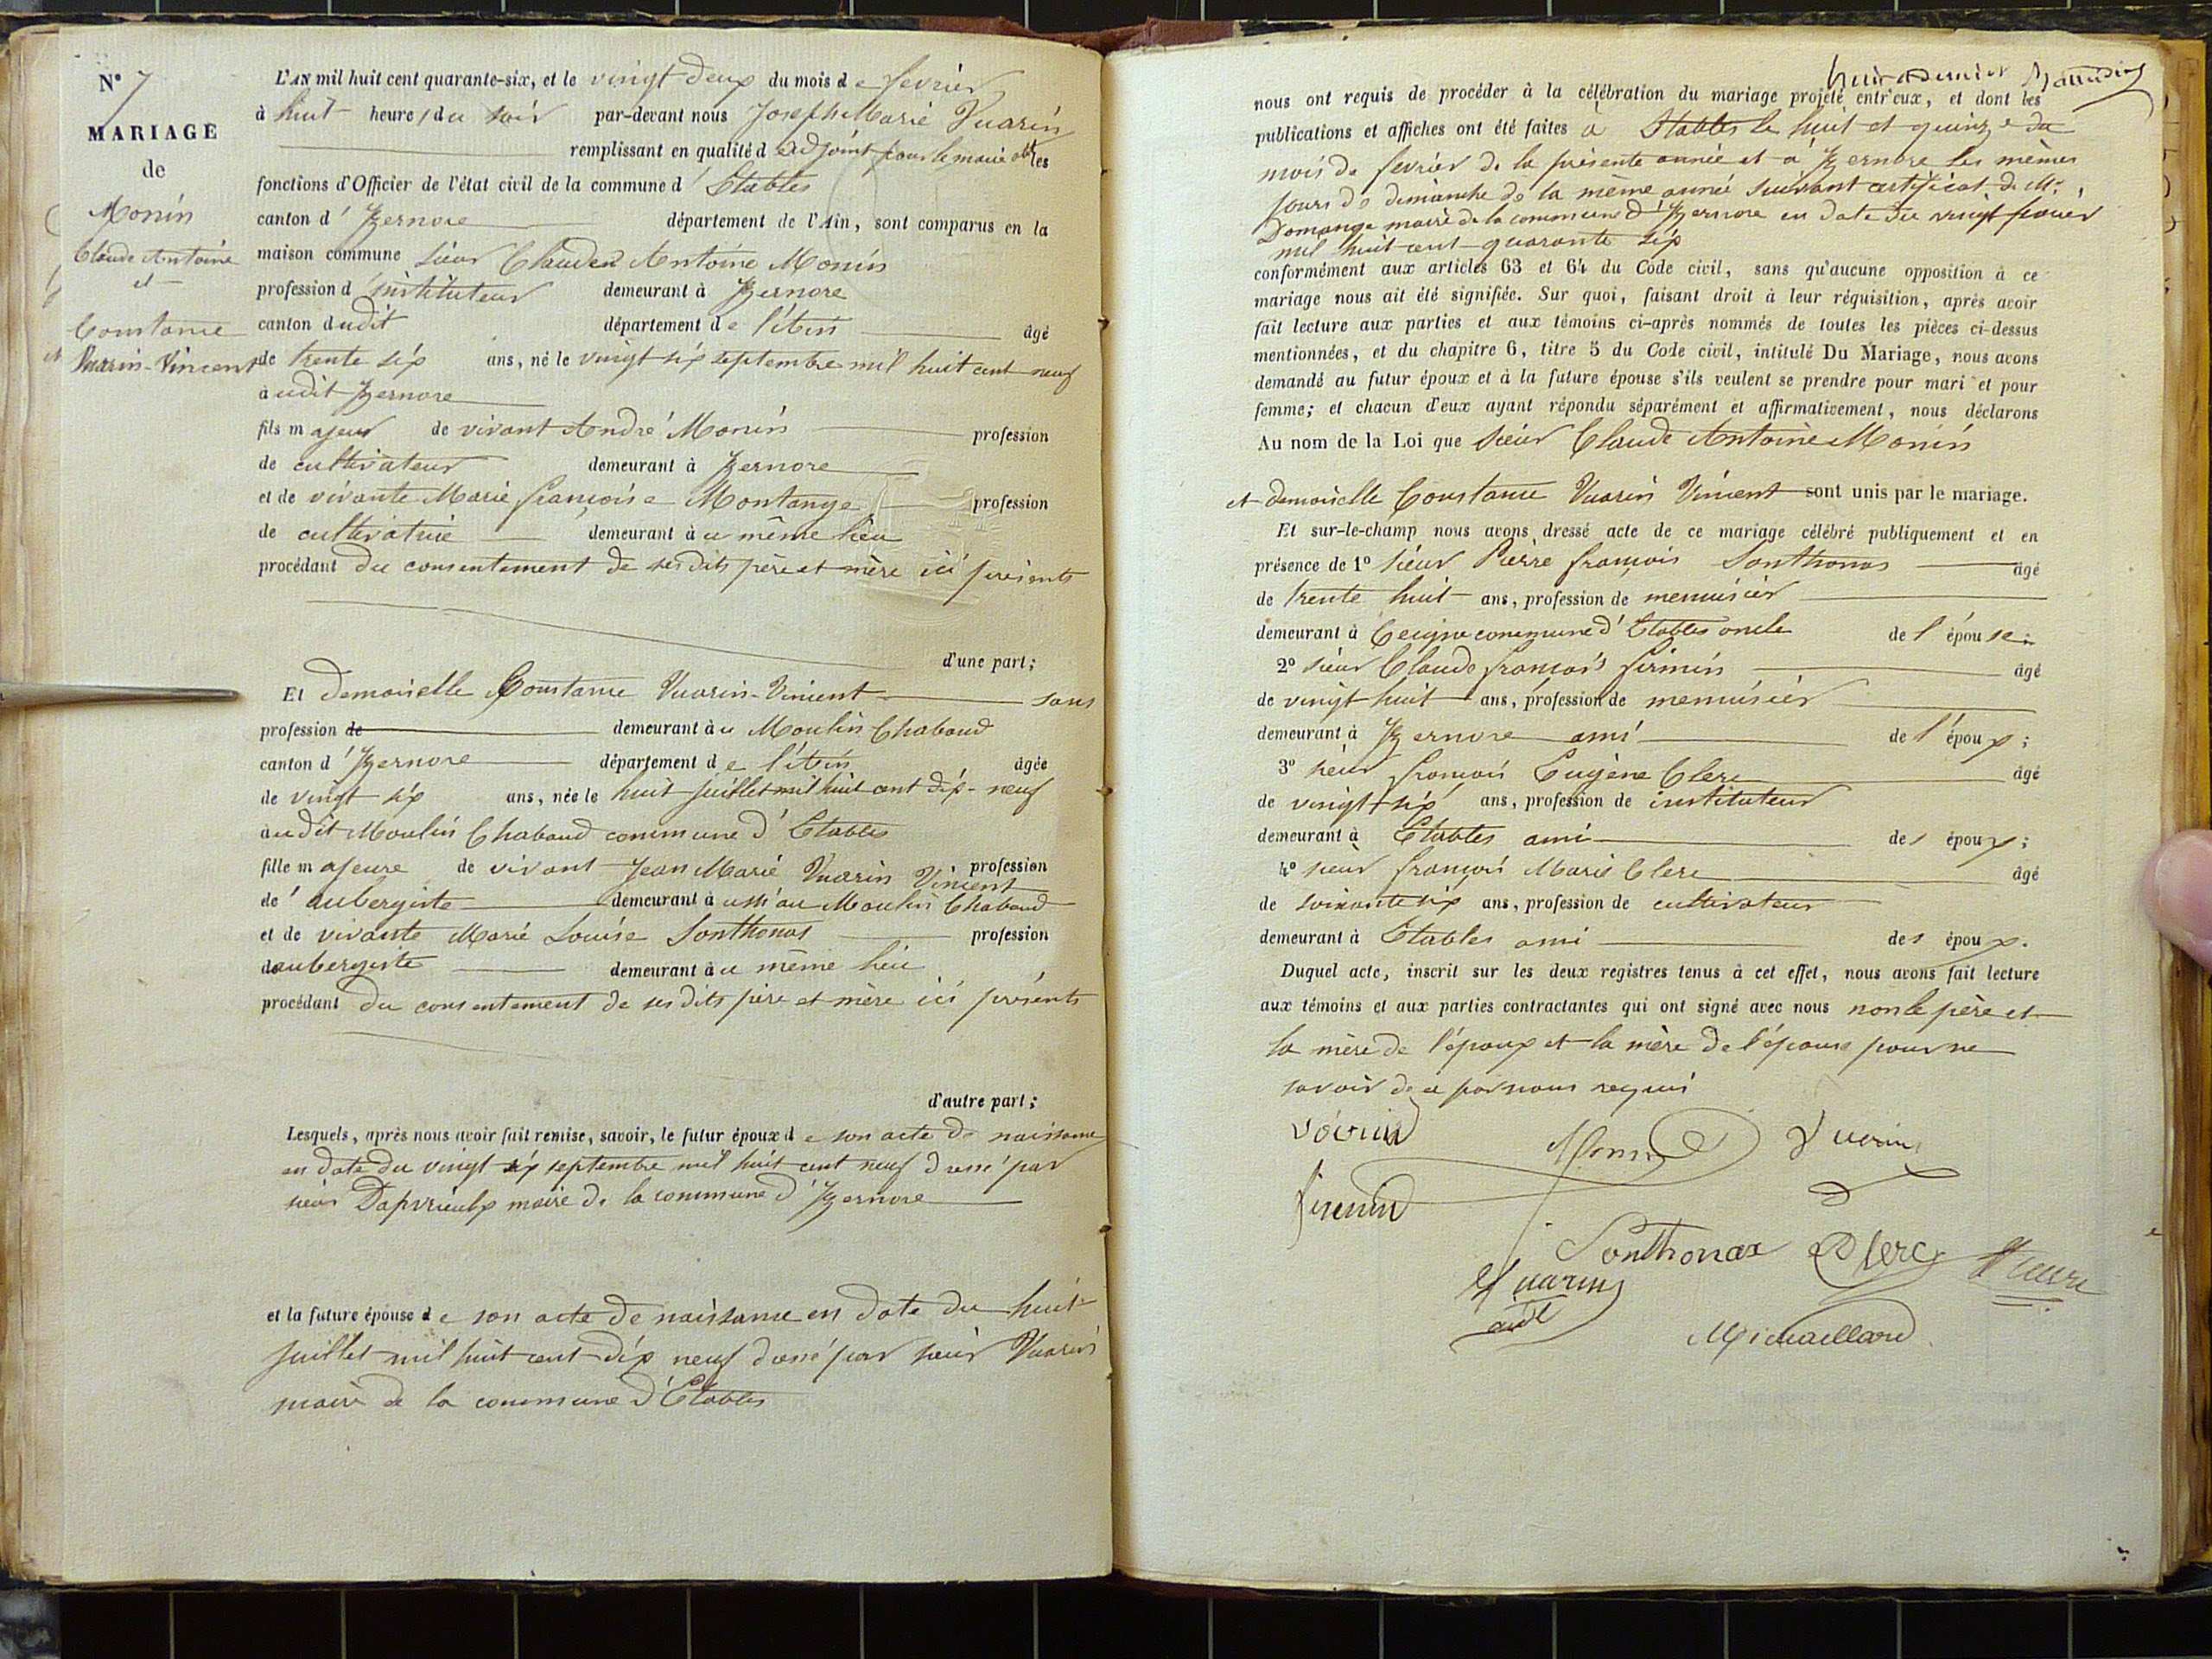 N° 7
MARIAGE
de
Monin
Claude Antoine
et
Constance
Vuarin-Vincent
L'AN mil huit cent quarante-six, et le vingt deux du mois de fevrier
à huit heures du soir par-devant nous Joseph Marie Vuarin
remplissant en qualité d'adjoint pour le maire abt les
fonctions d'Officier de l'état civil de la commune d'Etables
canton d'Izernore département de l'Ain, sont comparus en la
maison commune sieur Claude Antoine Monin
profession d'instituteur demeurant à Izernore
canton dudit département de l'Ain âgé
de trente six ans, né le vingt six septembre mil huit cent neuf
audit Izernore
fils majeur de vivant André Monin profession
de cultivateur demeurant à Izernore
et de vivante Marie françoise Montange profession
de cultivatrice demeurant au même lieu
procédant du consentement de ses dits père et mère ici présents
d'une part;
Et demoiselle Constance Vuarin-Vincent sans
profession de demeurant au Moulin Chabaud
canton d'Izernore département de l'Ain âgée
de vingt six ans, née le huit juillet mil huit cent dix-neuf
audit Moulin Chabaud commune d'Etables
fille majeure de vivant Jean Marie Vuarin Vincent profession
de aubergiste demeurant aussi au Moulin Chabaud
et de vivante Marie Louise Sonthonas profession
daubergiste demeurant au même lieu
procédant du consentement de ses dits père et mère ici présents
d'autre part;
Lesquels, après nous avoir fait remise, savoir, le futur époux de son acte de naissance
en date du vingt six septembre mil huit cent neuf dressé par
sieur Dapvrieulx maire de la commune d'Izernore
et la future épouse de son acte de naissance en date du huit
juillet mil huit cent dix neuf dressé par sieur Vuarin
maire de la commune d'Etables
nous ont requis de procéder à la célébration du mariage projeté entr'eux, et dont les
publications et affiches ont été faites à Etables le huit et quinze du
mois de fevrier de la présente année et à Izernore les mêmes
jours de dimanche de la même année suivant certificat de Mr
Domange maire de la commune d'Izernore en date du vingt fevrier
mil huit cent quarante six
conformément aux articles 63 et 64 du Code civil, sans qu'aucune opposition à ce
mariage nous ait été signifiée. Sur quoi, faisant droit à leur réquisition, après avoir
fait lecture aux parties et aux témoins ci-après nommés de toutes les pièces ci-dessus
mentionnées, et du chapitre 6, titre 5 du Code civil, intitulé Du Mariage, nous avons
demandé au futur époux et à la future épouse s'ils veulent se prendre pour mari et pour
femme; et chacun d'eux ayant répondu séparément et affirmativement, nous déclarons
Au nom de la Loi que sieur Claude Antoine Monin
et demoiselle Constance Vuarin Vincent sont unis par le mariage.
Et sur-le-champ nous avons dressé acte de ce mariage célébré publiquement et en
présence de 1° sieur Pierre françois Sonthonas âgé
de trente huit ans, profession de menuisier
demeurant à Ceigne commune d'Etables oncle de l'épouse;
2° sieur Claude françois firmin âgé
de vingt huit ans, profession de menuisier
demeurant à Izernore ami de l'époux;
3° sieur françois Eugène Clerc âgé
de vingt six ans, profession de instituteur
demeurant à Etables ami des époux;
4° sieur françois Marie Clerc âgé
de soixante six ans, profession de cultivateur
demeurant à Etables ami des époux.
Duquel acte, inscrit sur les deux registres tenus à cet effet, nous avons fait lecture
aux témoins et aux parties contractantes qui ont signé avec nous non le père et
la mère de l'époux et la mère de l'épouse pour ne
savoir de ce par nous requis
Monin
Vuarin
firmin
Sonthonax
Clerc
Vuarin
adt